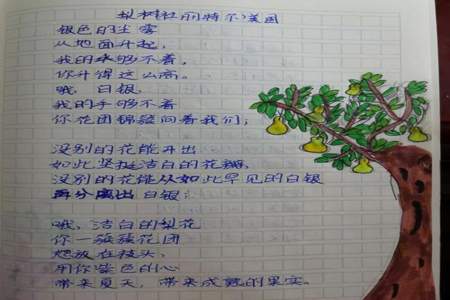 梨树杜丽特尔〉美国
银色的尘雾
从地面升起,
我的手够不着,
你升得这么高。
哦 白银,
我的手够不着
你花团锦簇向着我们;
没别的花能开出
如此坚挺洁白的花瓣,
没别的花能从如此罕见的白银
再分离出 白银;
哦, 洁白的梨花
你一簇簇花团
怒放在枝头,
用你紫色的心
带来夏天, 带来成熟的果实。